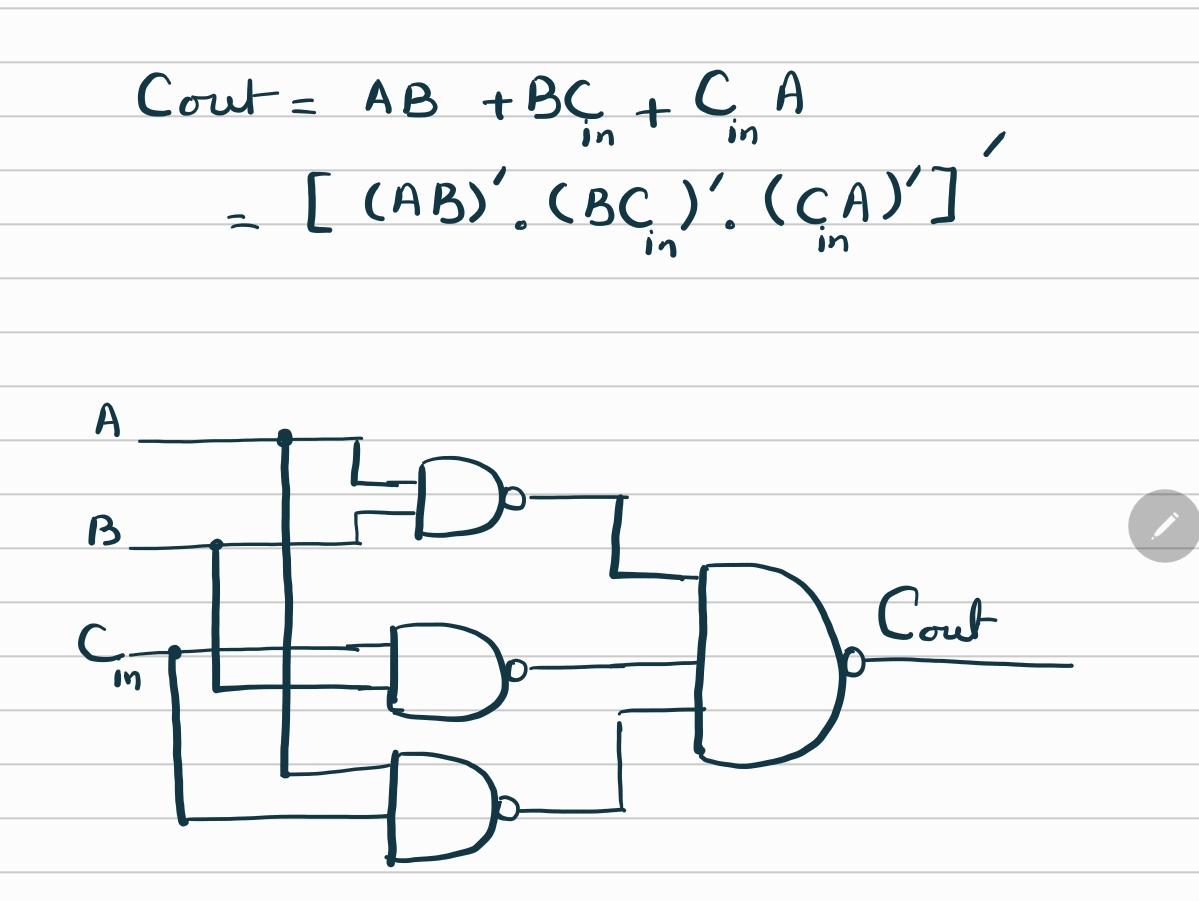 Cout = AB + BCin + Cin A
= [ (AB)′ . (BCin)′ . (CinA)′ ]′
A
B
Cin
Cout